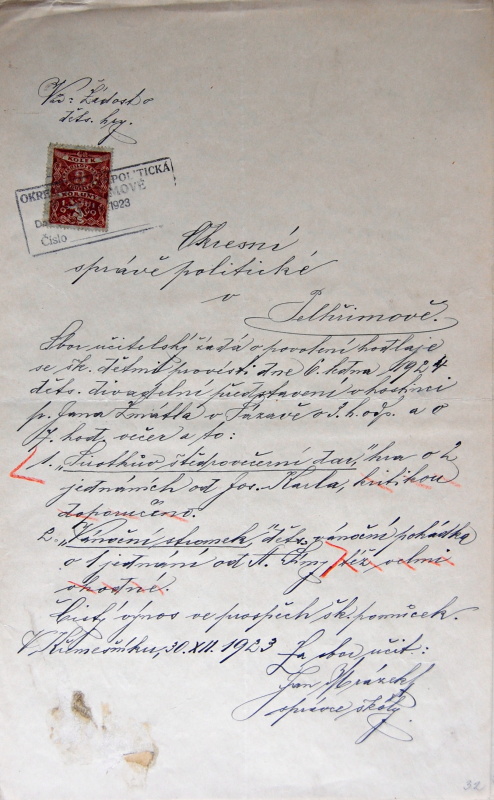 Věc: Žádost o
děts. hry.
KOLEK
KORUNY
OKRESNÍ POLITICKÁ
1923
Číslo
Okresní
správě politické
v
Pelhřimově.
Sbor učitelský žádá o povolení hodlaje
se šk. dětmi provésti dne 6. ledna 1924
děts. divadelní představení v hostinci
p. Jana Zmatla v Sázavě o 3. hod. a o
7. hod. večer a to:
1. „Sirotkův štědrovečerní dar," hra o 2
jednáních od Jos. Karla, kritikou
doporučeno.
2. „Vánoční stromek, děts. vánoční pohádka
o 1 jednání od A. též velmi
vhodné.
Čistý výnos ve prospěch šk. pomůcek.
V Křemešníku, 30. XII. 1923
Za sbor učit:
Jan Mrázek
správce školy.
32